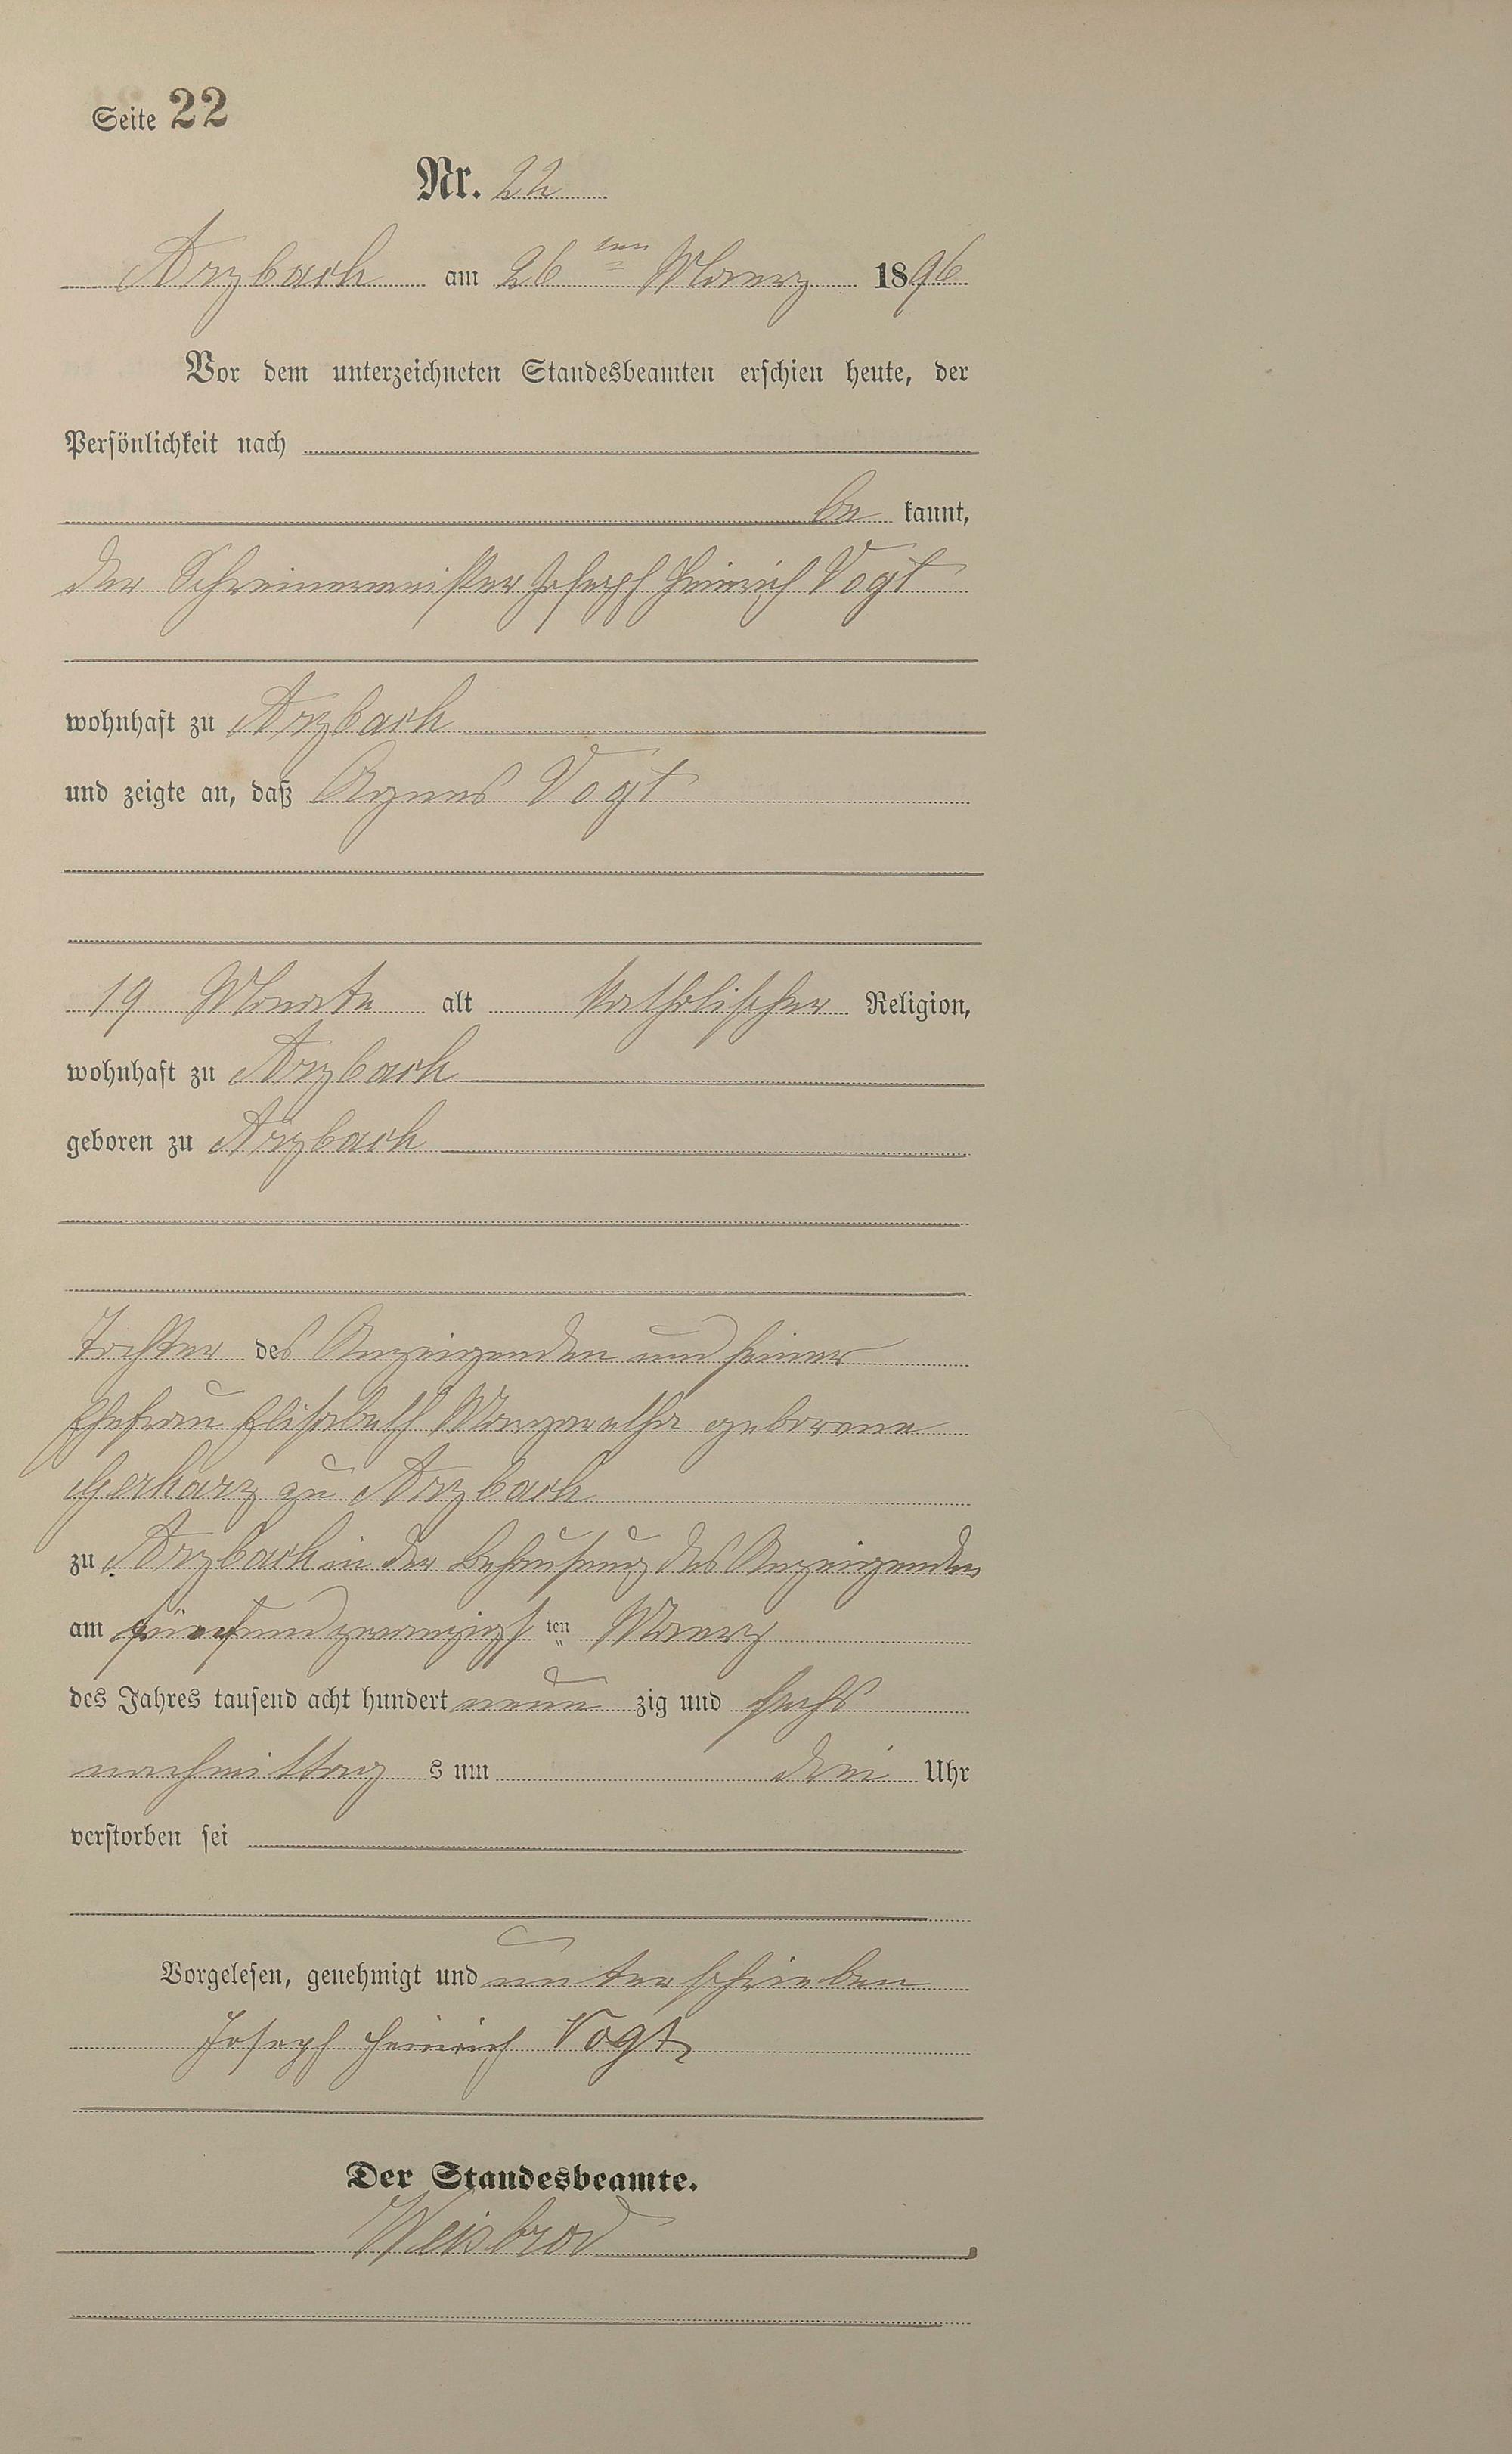 Seite 22
Nr. 22
Arzbach am 26ten Maerz 1896
Vor dem unterzeichneten Standesbeamten erschien heute, der
Persönlichkeit nach
be kannt,
der Schreinermeister Joseph Heinrich Vogt
wohnhaft zu Arzbach
und zeigte an, daß Agnes Vogt
19 Monate alt katholischer Religion,
wohnhaft zu Arzbach
geboren zu Arzbach
Tochter des Anzeigenden und seiner
Ehefrau Elisabeth Margaretha geborene
Gerharz zu Arzbach
zu Arzbach in der Behausung des Anzeigenden
am fünfundzwanzigst ten Maerz
des Jahres tausend acht hundert neun zig und sechs
nachmittag s um drei Uhr
verstorben sei
Vorgelesen, genehmigt und unterschrieben
Joseph Heinrich Vogt
Der Standesbeamte.
Weisbrod